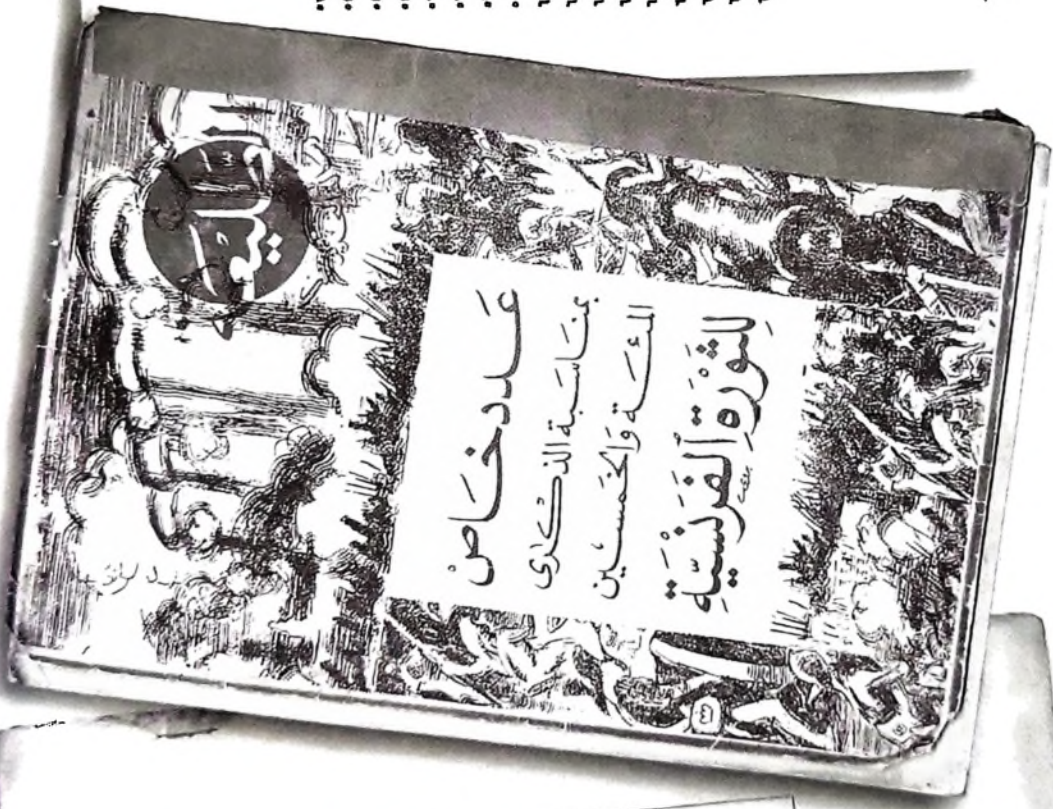 الطليعة
عَدد خَاصْ
بمنَاسَبَة الذكرى
المئَة وَالخمسَين
لِلثَّوْرَةِ الفَرَنْسِيَّةِ